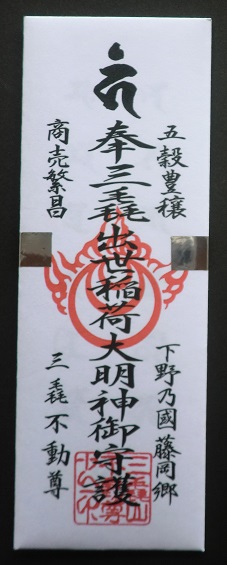 五穀豊穣
下野乃國藤岡郷
奉三毳出世稲荷大明神御守護
商売繁昌
三毳不動尊